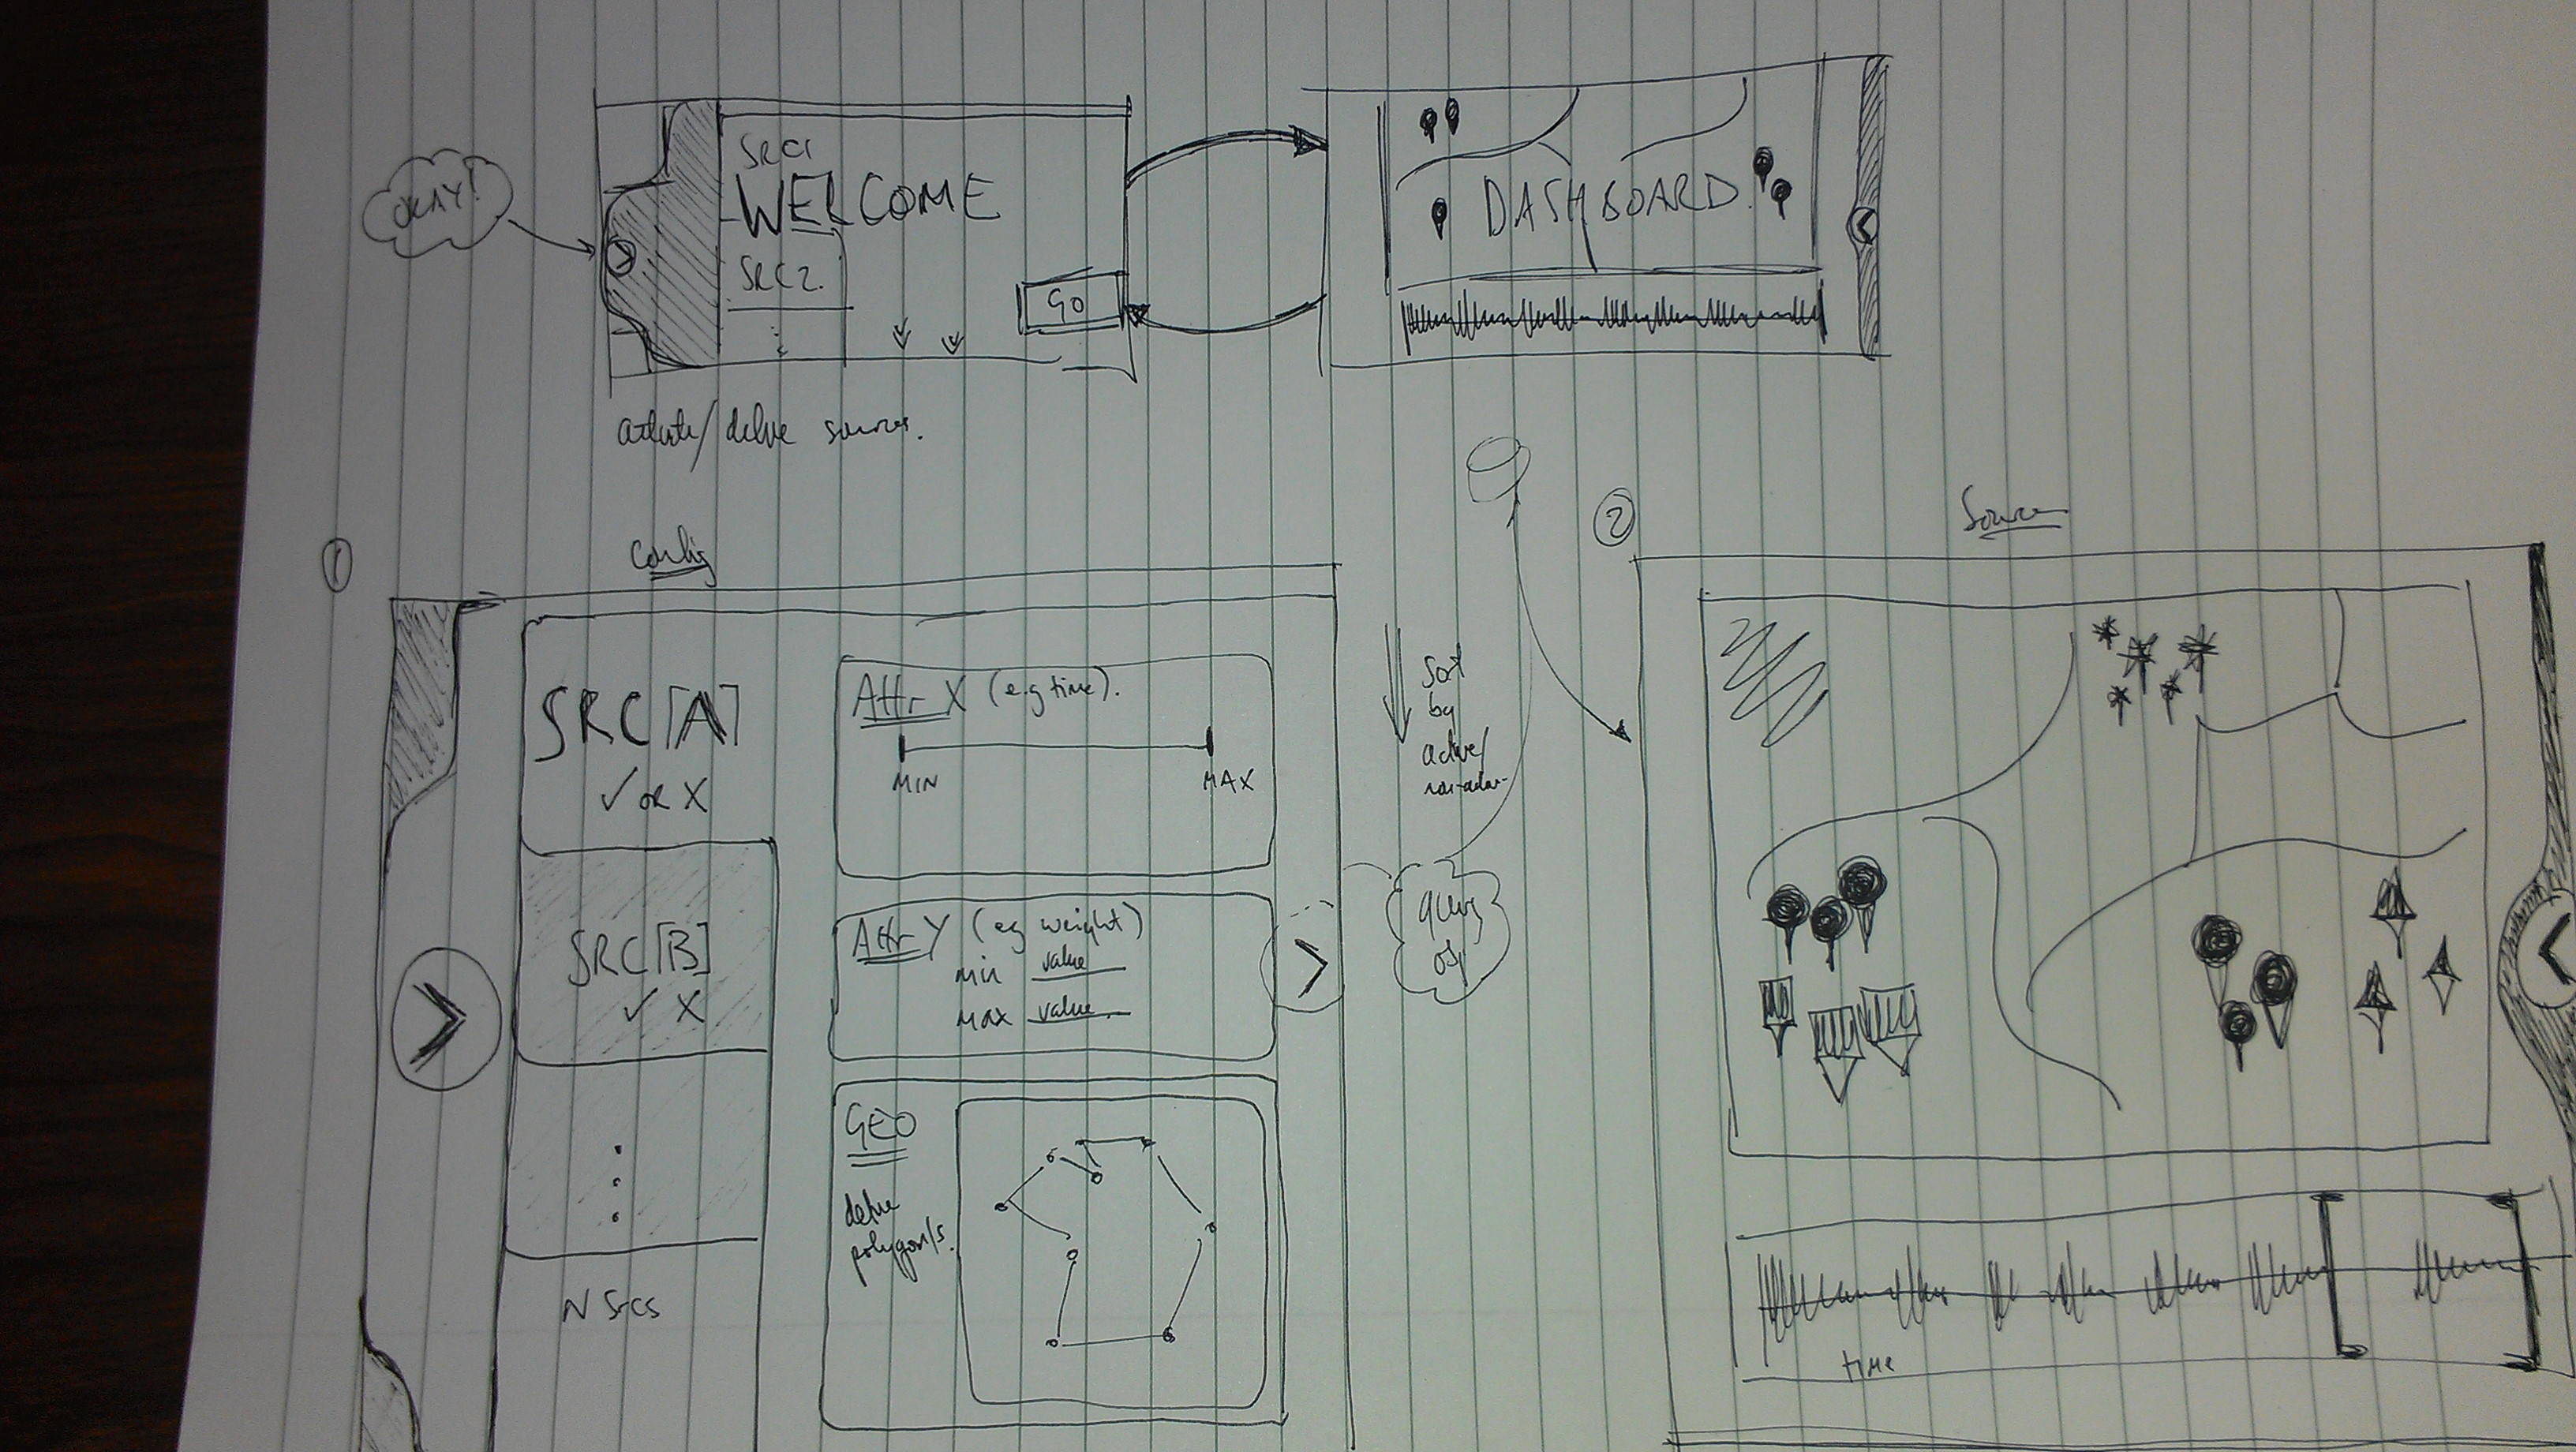 OKAY!
SRC1
WELCOME
SRC2.
GO
DASHBOARD.
/ define sources.
1
Config
SRC[A]
✓ OR X
SRC[B]
✓ X
N Srcs
Attr X (e.g time).
MIN
MAX
Attr Y (eg weight)
min value
max value
GEO
define
polygon/s.
Sort
by
active/
query
2
Source
time